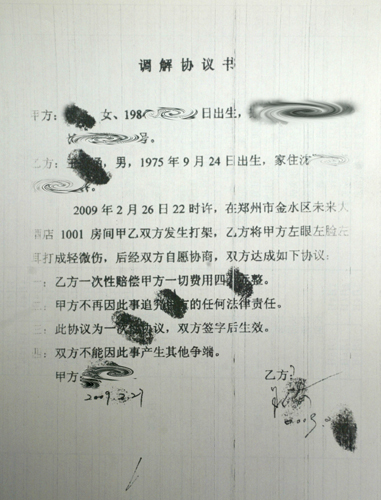 调解协议书
甲方: 女、198 日出生,
号。
乙方: 男，1975 年 9 月 24 日出生，家住沈
2009 年 2 月 26 日 22 时许，在郑州市金水区未来大
酒店 1001 房间甲乙双方发生打架，乙方将甲方左眼左脸左
耳打成轻微伤，后经双方自愿协商，双方达成如下协议：
一：乙方一次性赔偿甲方一切费用四 整。
甲方不再因此事追究 方的任何法律责任。
此协议为一次 协议，双方签字后生效。
四：双方不能因此事产生其他争端。
甲方: 乙方:
2009.2.27 2009.